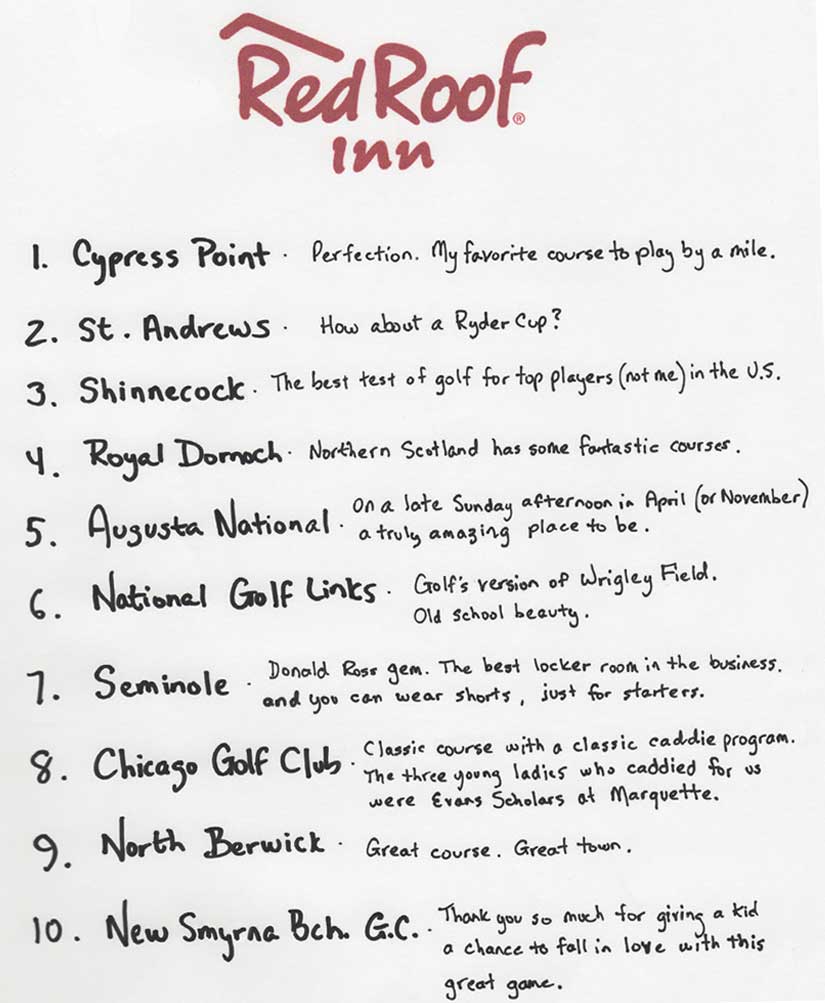 Red Roof®
Inn
1. Cypress Point · Perfection. My favorite course to play by a mile.
2. St. Andrews · How about a Ryder Cup?
3. Shinnecock · The best test of golf for top players (not me) in the U.S.
4. Royal Dornoch · Northern Scotland has some fantastic courses.
5. Augusta National · On a late Sunday afternoon in April (or November)
a truly amazing place to be.
6. National Golf Links · Golf's version of Wrigley Field.
Old school beauty.
7. Seminole · Donald Ross gem. The best locker room in the business.
and you can wear shorts, just for starters.
8. Chicago Golf Club · Classic course with a classic caddie program.
The three young ladies who caddied for us
were Evans Scholars at Marquette.
9. North Berwick · Great course. Great town.
10. New Smyrna Bch. G.C. · Thank you so much for giving a kid
a chance to fall in love with this
great game.